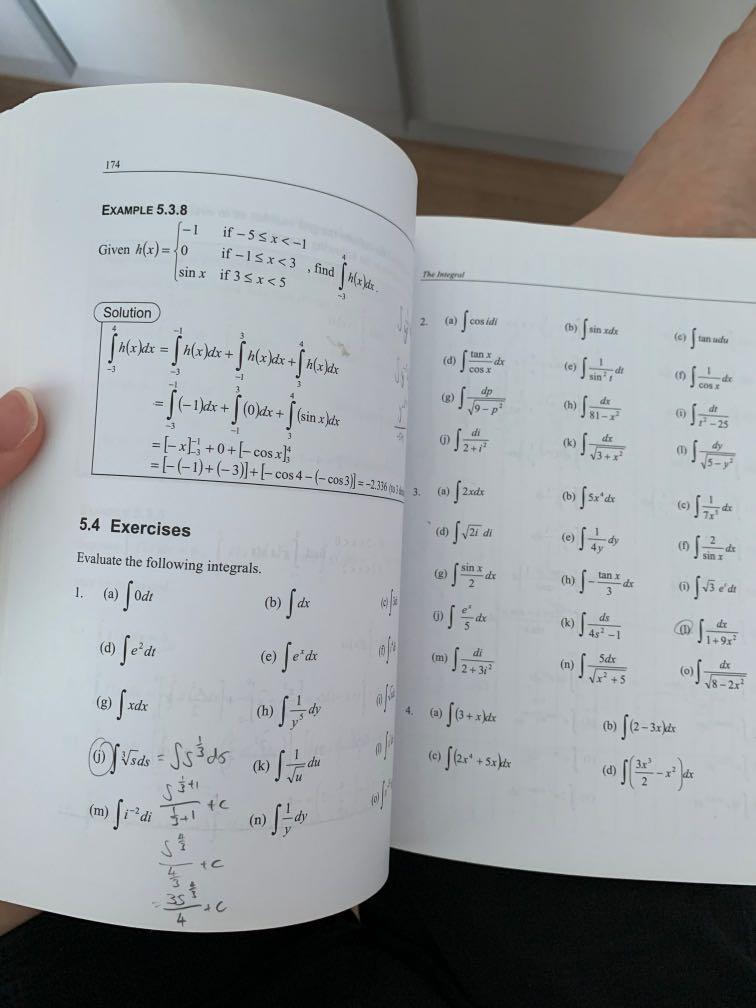 174
EXAMPLE 5.3.8
Given h(x) = { −1 if −5 ≤ x < −1
0 if −1 ≤ x < 3 , find ∫_{-3}^{4} h(x)dx.
sin x if 3 ≤ x < 5
Solution
∫_{-3}^{4} h(x)dx = ∫_{-3}^{-1} h(x)dx + ∫_{-1}^{3} h(x)dx + ∫_{3}^{4} h(x)dx
= ∫_{-3}^{-1} (−1)dx + ∫_{-1}^{3} (0)dx + ∫_{3}^{4} (sin x)dx
= [−x]_{-3}^{-1} + 0 + [−cos x]_{3}^{4}
= [−(−1) + (−3)] + [−cos 4 − (−cos 3)] = −2.336 (to 3
5.4 Exercises
Evaluate the following integrals.
1. (a) ∫0dt (b) ∫dx (c)
(d) ∫e²dt (e) ∫eˣdx (f)
(g) ∫xdx (h) ∫ 1/y⁵ dy (i)
(j) ∫∛s ds = ∫s^{1/3} ds (k) ∫ 1/√u du (l)
s^{1/3+1} / (1/3+1) + c
(m) ∫i⁻²di (n) ∫ 1/y dy (o)
s^{4/3} / (4/3) + c
= 3s^{4/3} / 4 + c
The Integral
2. (a) ∫cos idi (b) ∫sin xdx (c) ∫tan udu
(d) ∫ tan x / cos x dx (e) ∫ 1 / sin² t dt (f) ∫ 1 / cos x dx
(g) ∫ dp / √(9 − p²) (h) ∫ dx / (81 − x²) (i) ∫ dt / (t² − 25)
(j) ∫ di / (2 + i²) (k) ∫ dx / √(3 + x²) (l) ∫ dy / √(5 − y²)
3. (a) ∫2xdx (b) ∫5x⁴dx (c) ∫ 1 / 7x³ dx
(d) ∫√(2i) di (e) ∫ 1 / 4y dy (f) ∫ 2 / sin x dx
(g) ∫ sin x / 2 dx (h) ∫ − tan x / 3 dx (i) ∫√3 eᵗ dt
(j) ∫ eˣ / 5 dx (k) ∫ ds / (4s² − 1) (l) ∫ dx / (1 + 9x²)
(m) ∫ di / (2 + 3i²) (n) ∫ 5dx / √(x² + 5) (o) ∫ dx / √(8 − 2x²)
4. (a) ∫(3 + x)dx (b) ∫(2 − 3x)dx
(c) ∫(2x⁴ + 5x)dx (d) ∫(3x³ / 2 − x²)dx